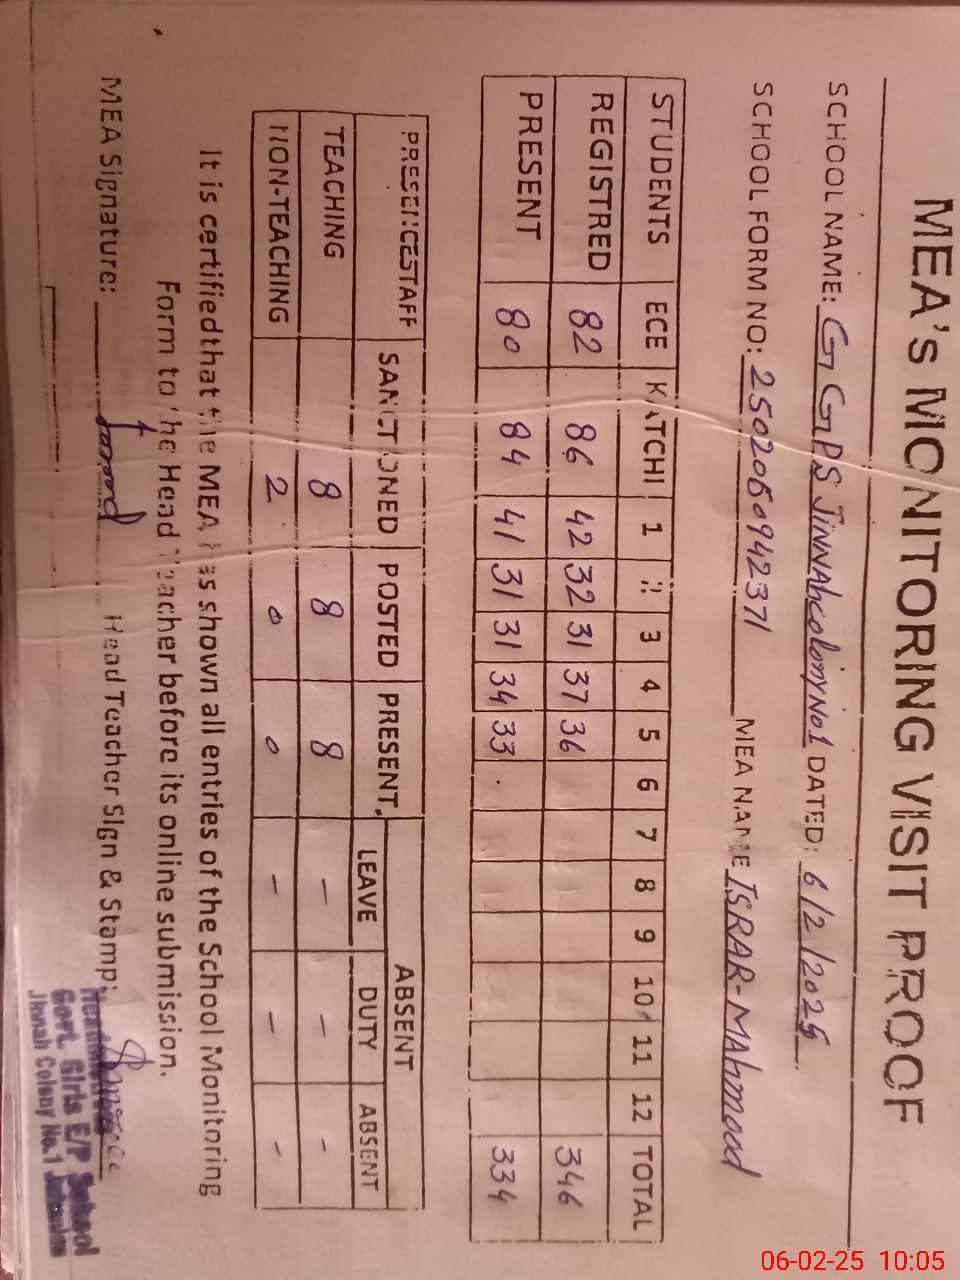 MEA's MONITORING VISIT PROOF
SCHOOL NAME: GGPS JINNAHcolonyNo1 DATED: 6/2/2025
SCHOOL FORM NO: 2502060942371 MEA NAME ISRAR-MAHMOOD
STUDENTS ECE KATCHI 1 2 3 4 5 6 7 8 9 10 11 12 TOTAL
REGISTRED 82 86 42 32 31 37 36 346
PRESENT 80 84 41 31 31 34 33 334
PRESENCESTAFF SANCTIONED POSTED PRESENT ABSENT
LEAVE DUTY ABSENT
TEACHING 8 8 8 - - -
NON-TEACHING 2 0 0 - - -
It is certifiedthat the MEA has shown all entries of the School Monitoring
Form to the Head Teacher before its online submission.
MEA Signature: Head Teacher Sign & Stamp:
Govt. Girls E/P School
Jinnah Colony No.1
06-02-25 10:05